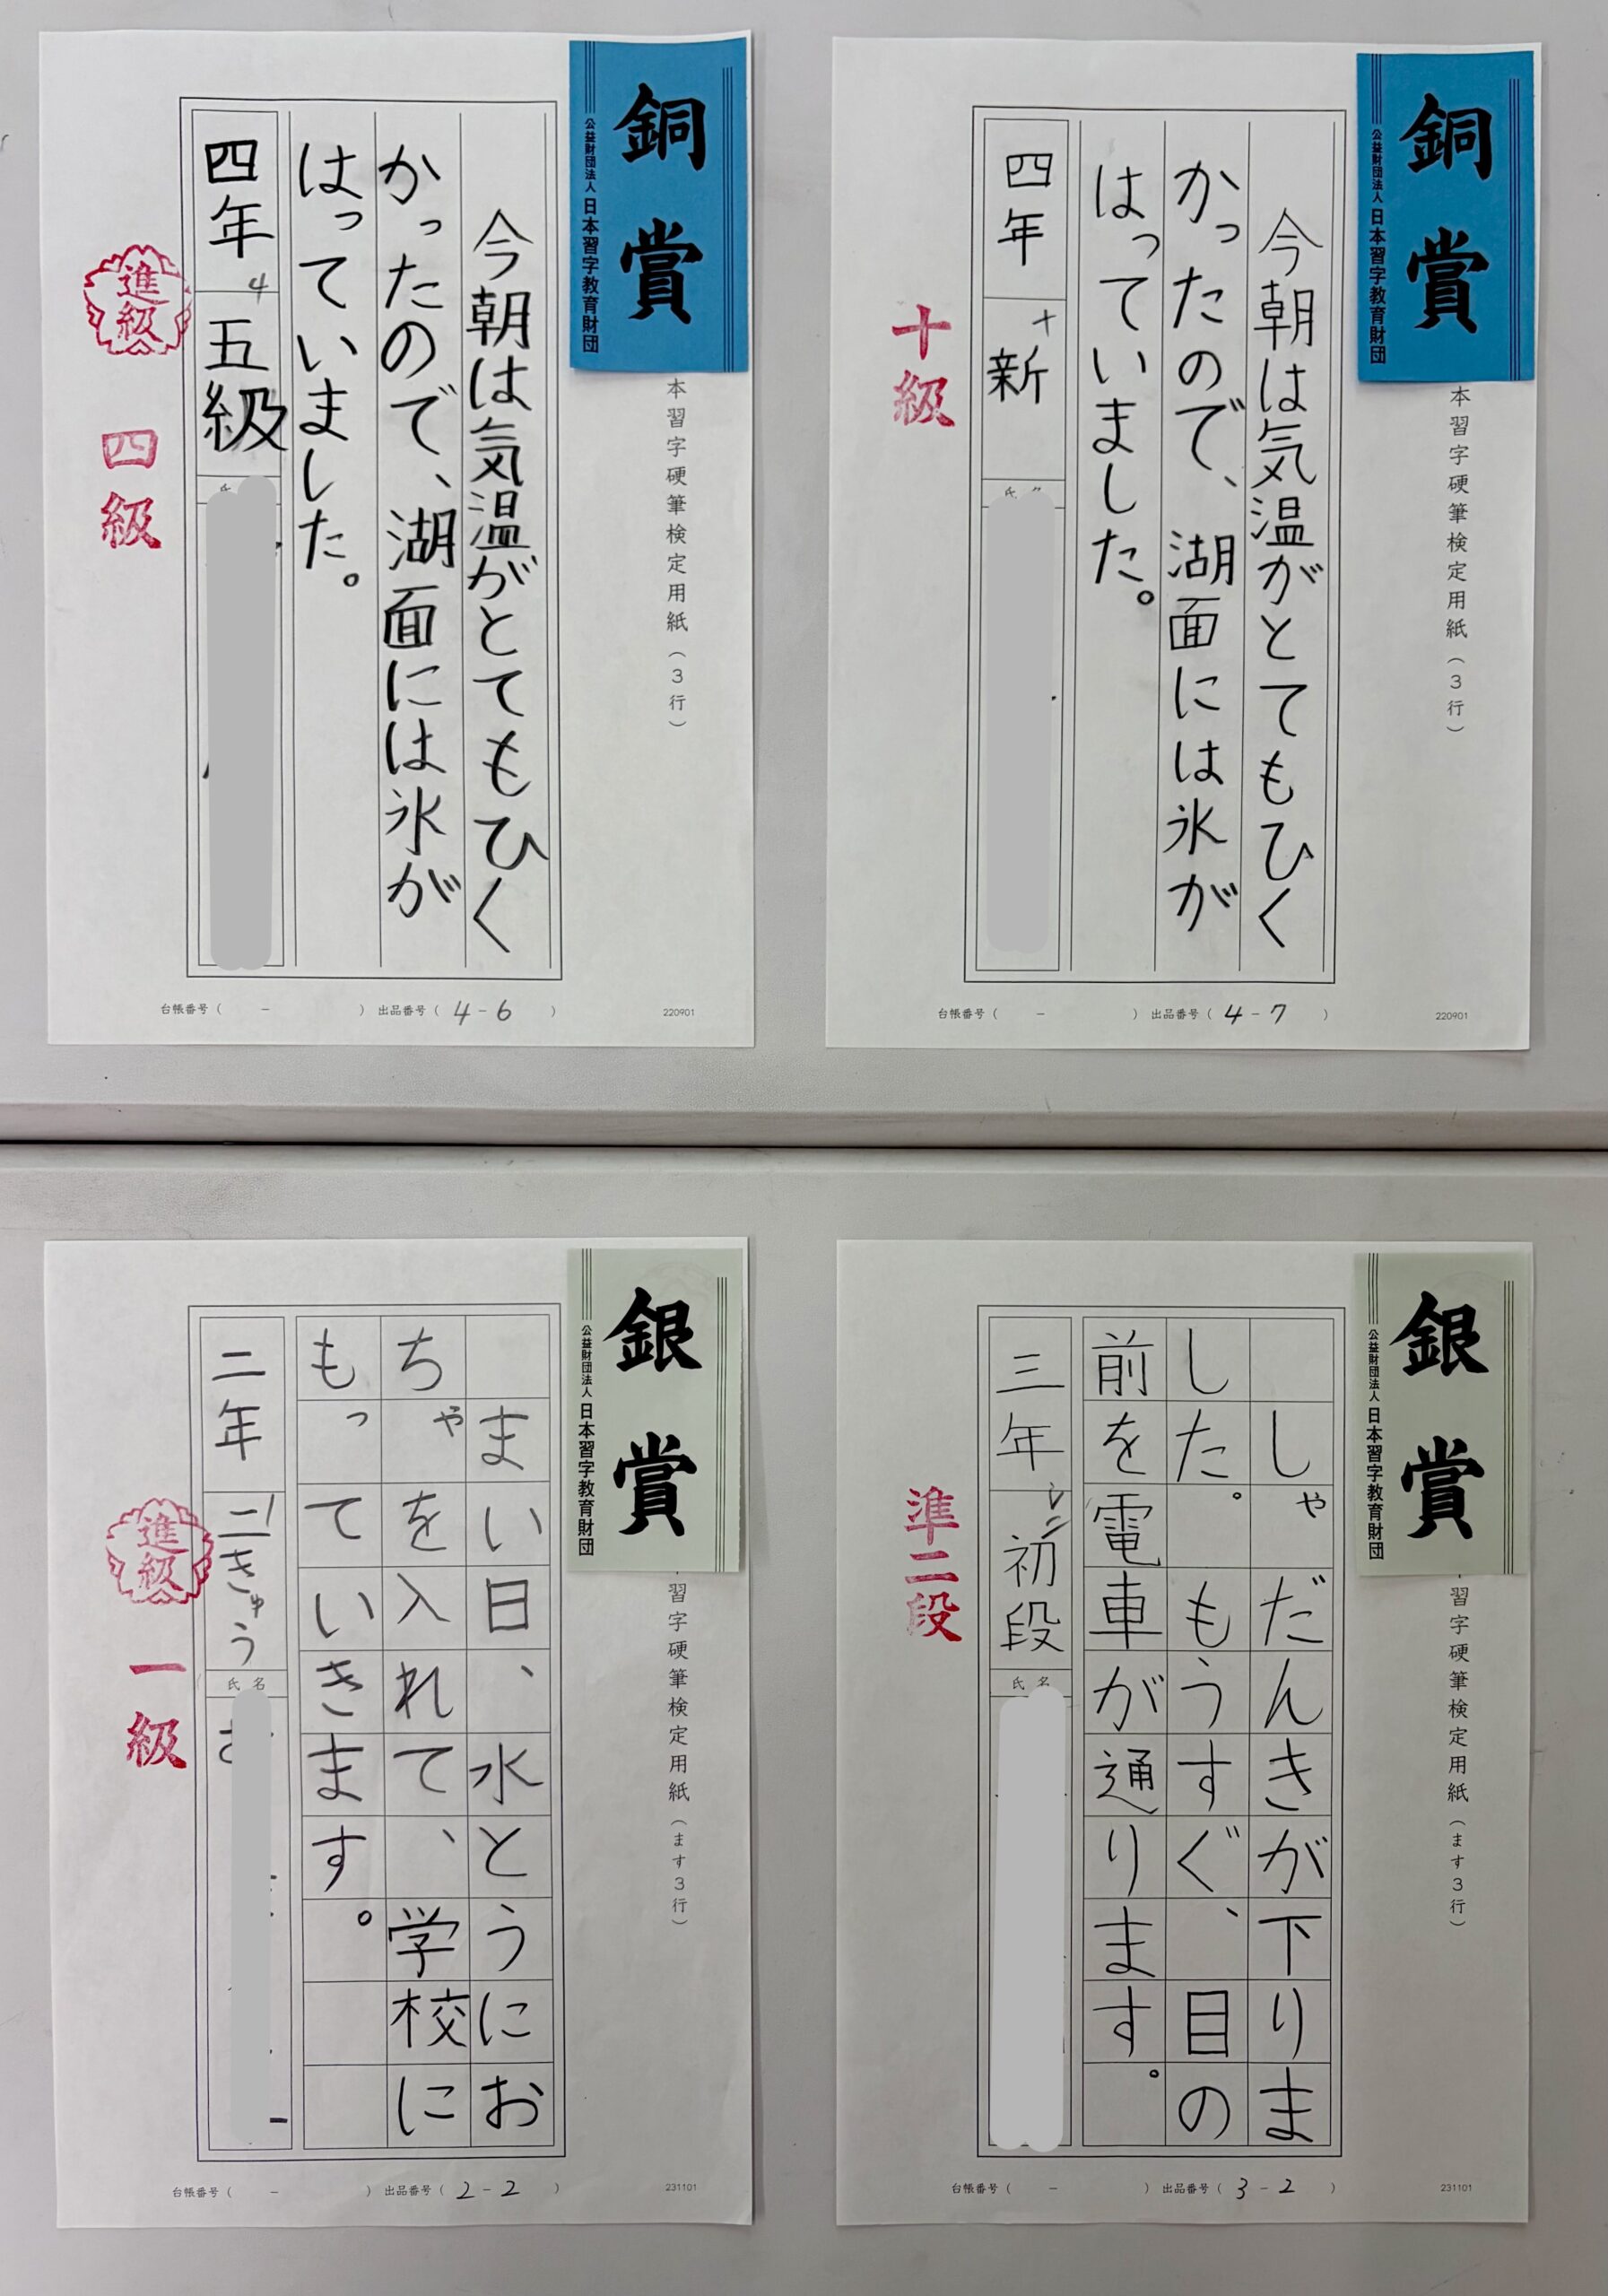 銅賞
公益財団法人 日本習字教育財団
本習字硬筆検定用紙(3行)
今朝は気温がとてもひく
かったので、湖面には氷が
はっていました。
四年
4
五級
進級
四級
台帳番号( - ) 出品番号( 4-6 )
220901
銅賞
公益財団法人 日本習字教育財団
本習字硬筆検定用紙(3行)
今朝は気温がとてもひく
かったので、湖面には氷が
はっていました。
四年
十
新
氏名
十級
台帳番号( - ) 出品番号( 4-7 )
220901
銀賞
公益財団法人 日本習字教育財団
習字硬筆検定用紙(ます3行)
まい日、水とうにお
ちゃを入れて、学校に
もっていきます。
二年
1
二きゅう
氏名
進級
一級
台帳番号( - ) 出品番号( 2-2 )
231101
銀賞
公益財団法人 日本習字教育財団
習字硬筆検定用紙(ます3行)
しゃだんきが下りま
した。もうすぐ、目の
前を電車が通ります。
三年
初段
氏名
準二段
台帳番号( - ) 出品番号( 3-2 )
231101